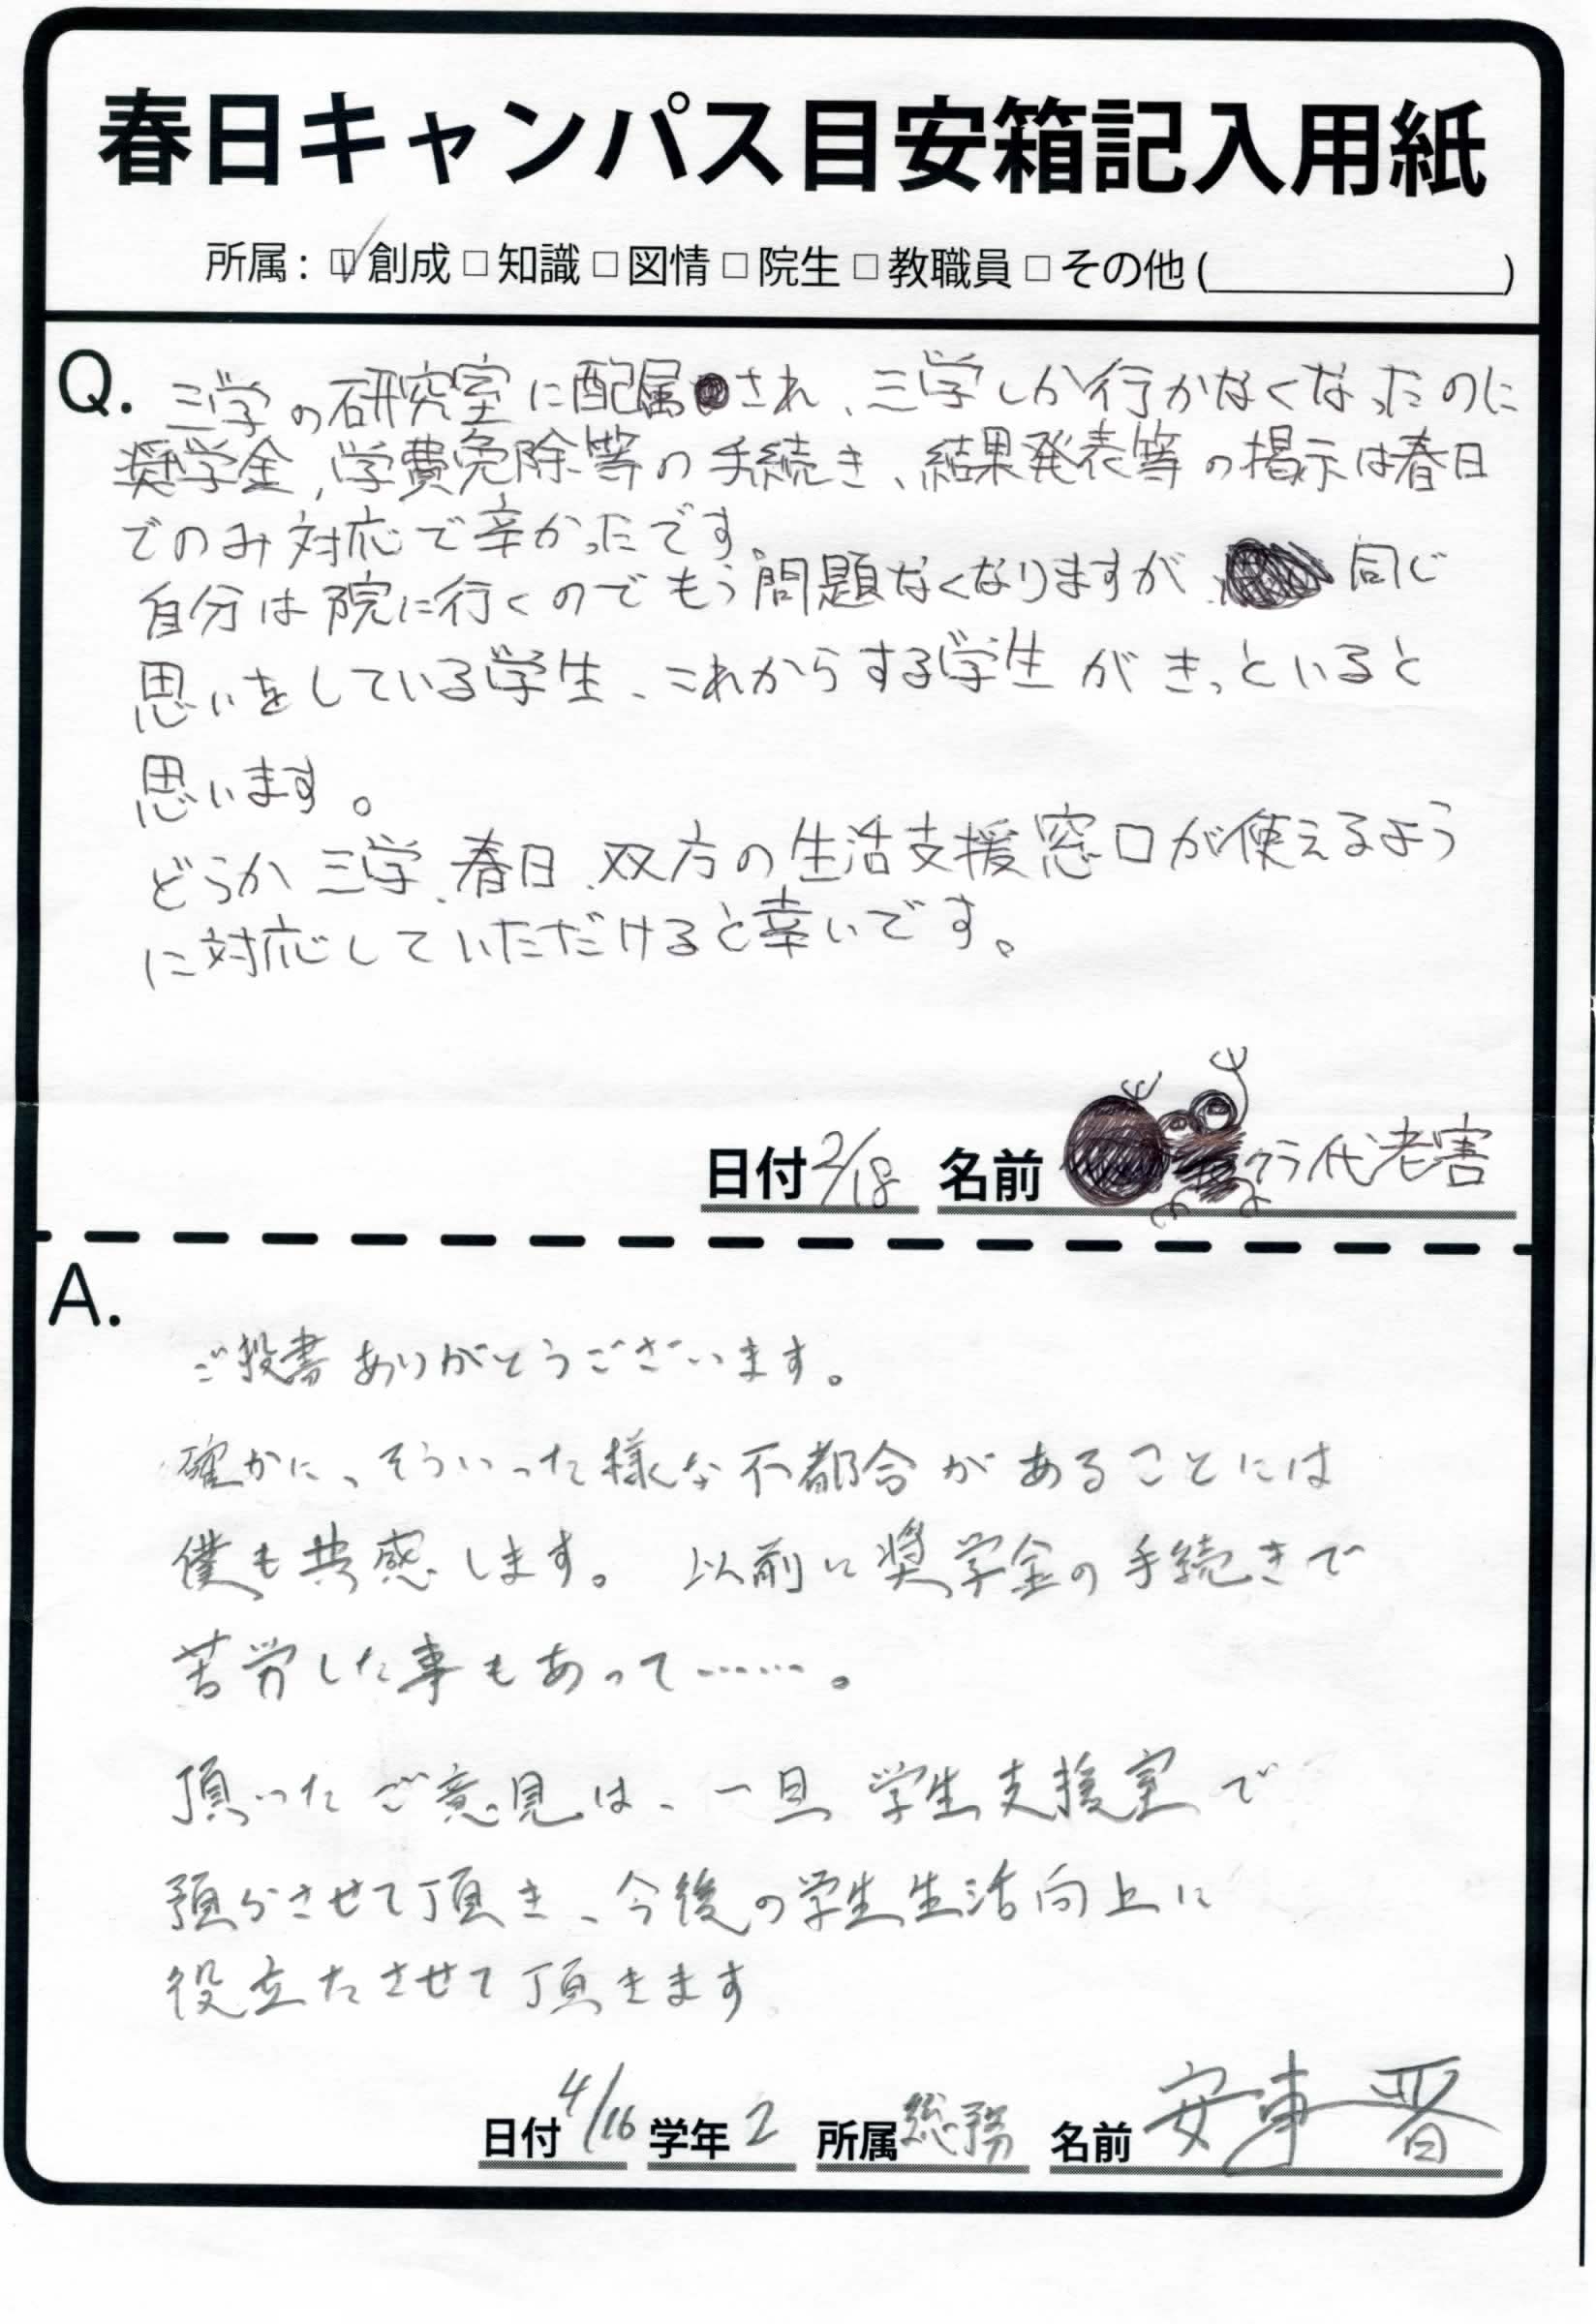 春日キャンパス目安箱記入用紙
所属：☑創成□知識□図情□院生□教職員□その他(　　　　　)
Q. 三学の研究室に配属され、三学しか行かなくなったのに
奨学金,学費免除等の手続き、結果発表等の掲示は春日
でのみ対応で辛かったです。
自分は院に行くのでもう問題なくなりますが 同じ
思いをしている学生、これからする学生がきっといると
思います。
どうか三学、春日、双方の生活支援窓口が使えるよう
に対応していただけると幸いです。
日付 2/18 名前 クラ代老害
A.
ご投書ありがとうございます。
確かに、そういった様な不都合があることには
僕も共感します。 以前に奨学金の手続きで
苦労した事もあって……。
頂いたご意見は、一旦 学生支援室で
預からさせて頂き、今後の学生生活向上に
役立たさせて頂きます
日付 4/16 学年 2 所属 総務 名前 安東 晋